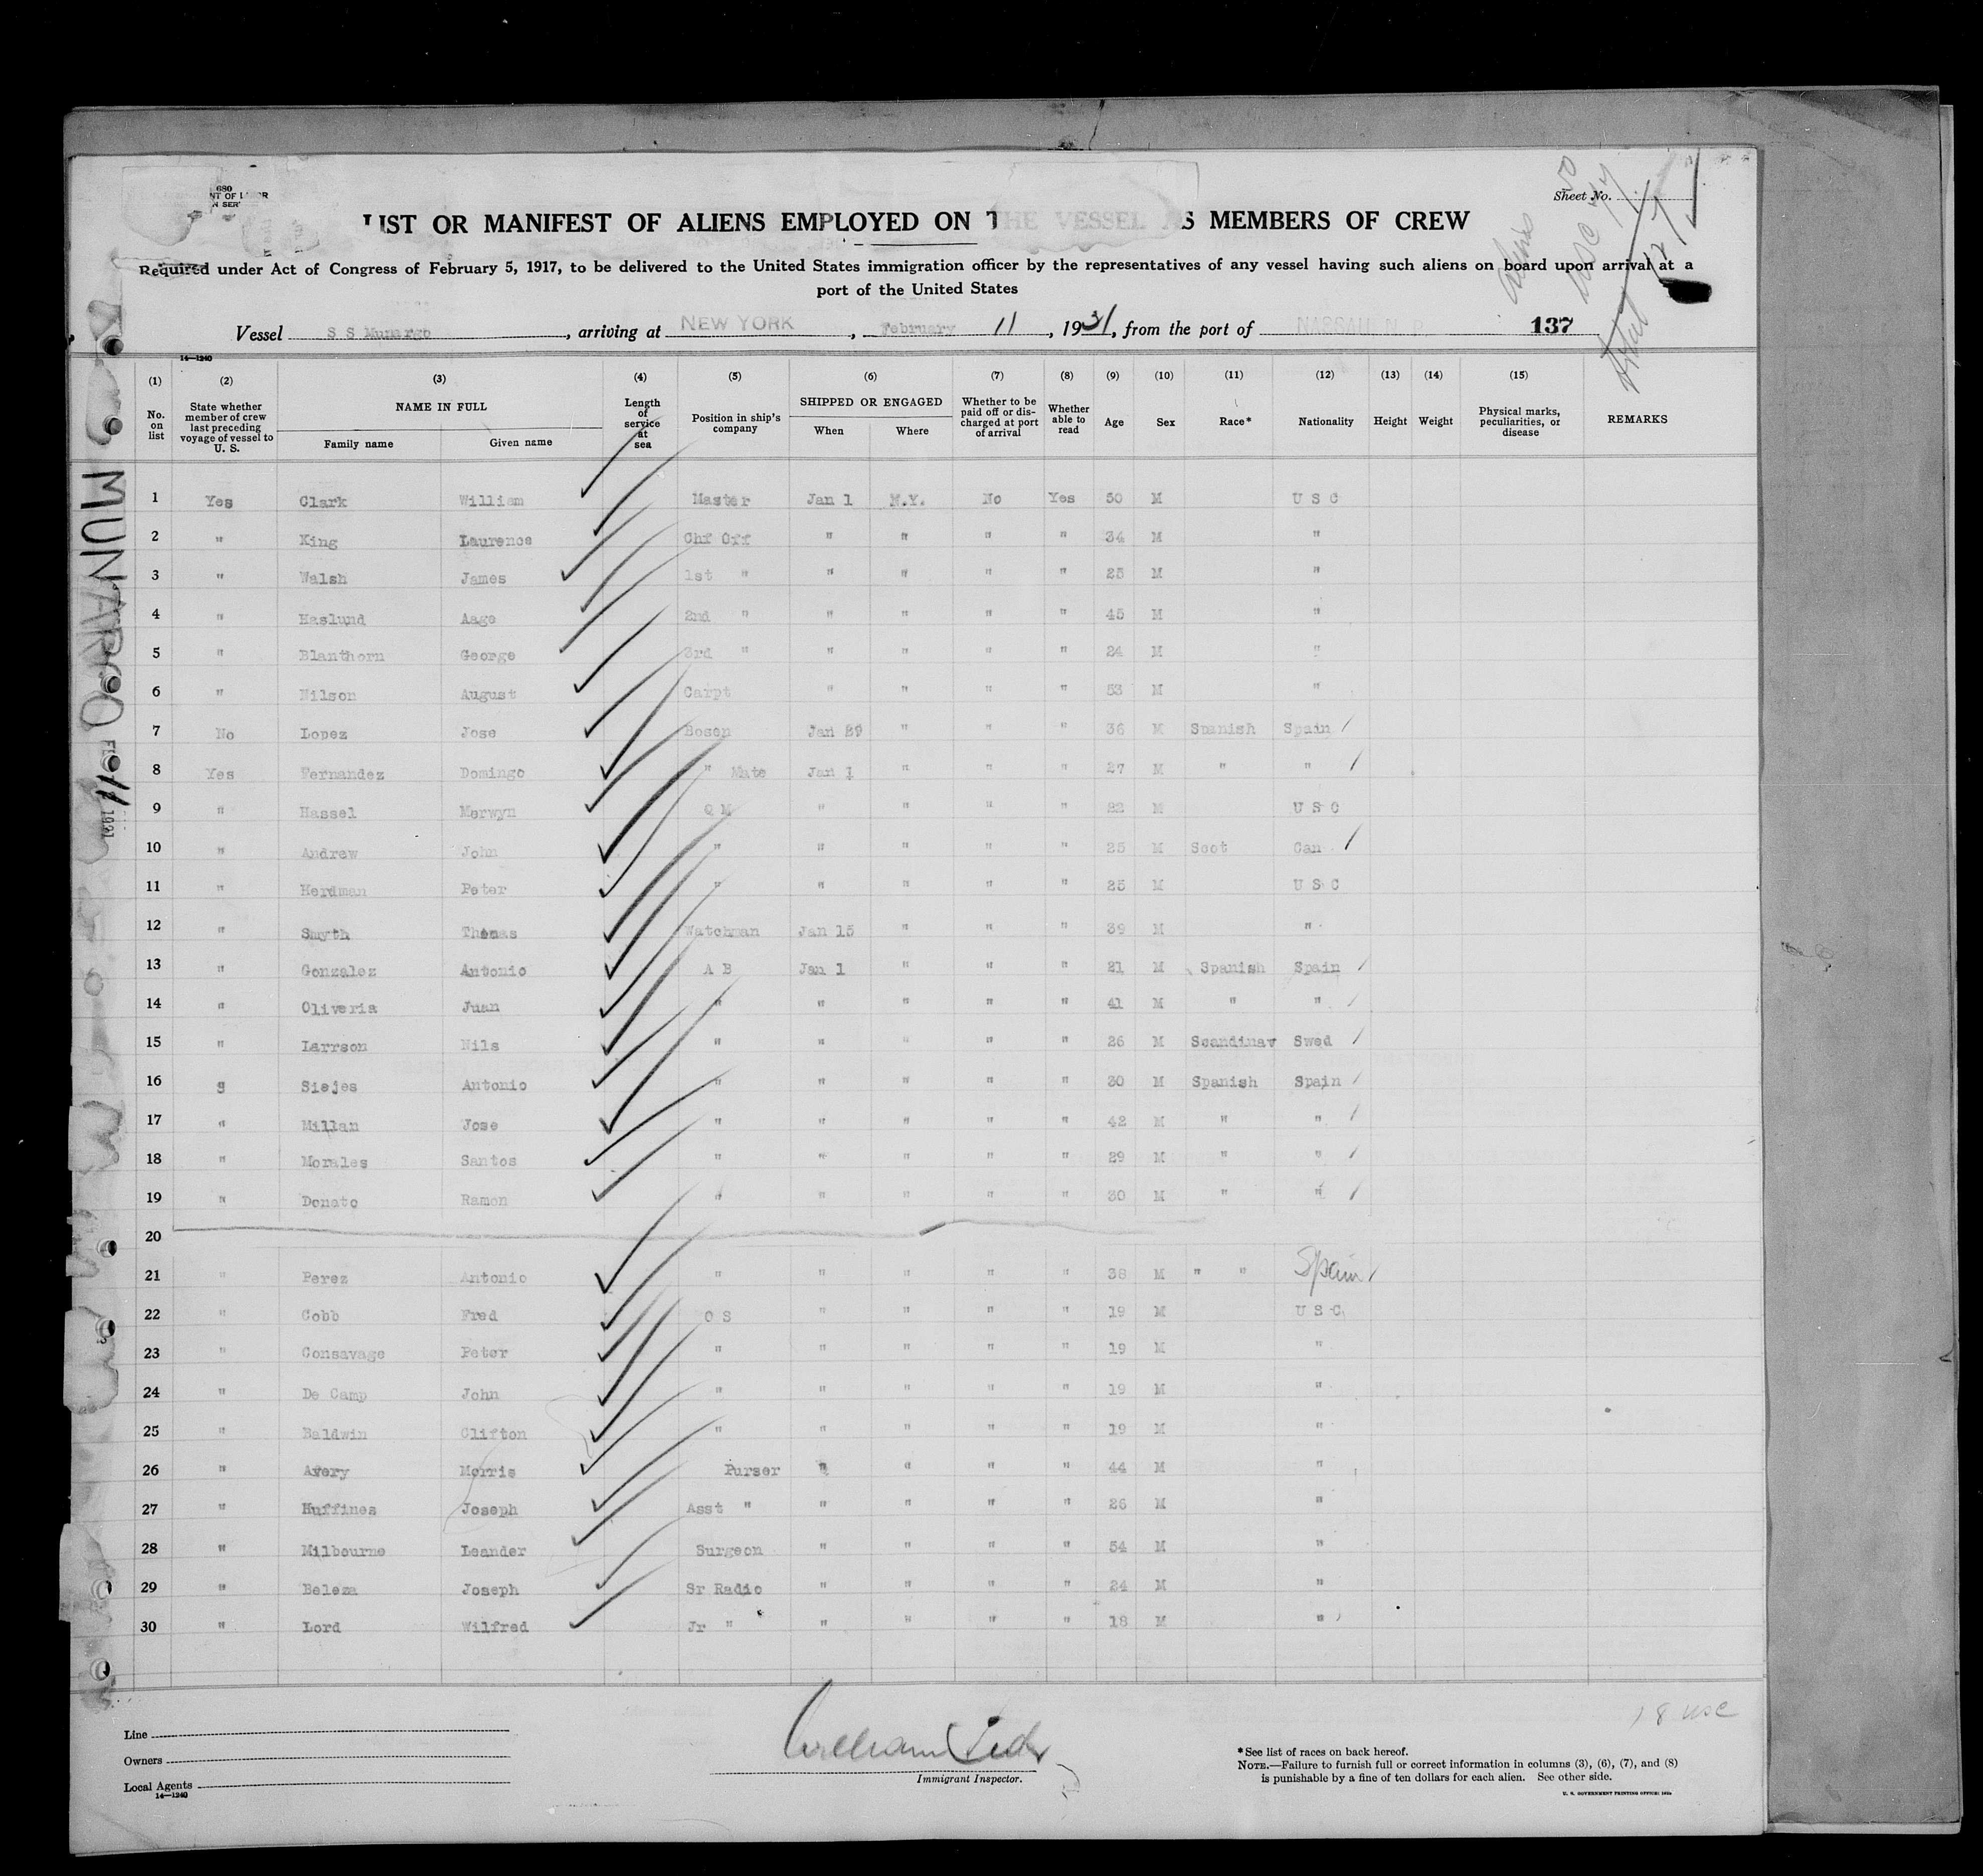 680
NT OF L OR
N SER
Sheet No.
LIST OR MANIFEST OF ALIENS EMPLOYED ON THE VESSEL AS MEMBERS OF CREW
Required under Act of Congress of February 5, 1917, to be delivered to the United States immigration officer by the representatives of any vessel having such aliens on board upon arrival at a
port of the United States
Vessel S S Munargo, arriving at NEW YORK, February 11, 1931, from the port of NASSAU N. P. 137
14—1240
(1) (2) (3) (4) (5) (6) (7) (8) (9) (10) (11) (12) (13) (14) (15)
No. on list State whether member of crew last preceding voyage of vessel to U. S. NAME IN FULL Family name Given name Length of service at sea Position in ship's company SHIPPED OR ENGAGED When Where Whether to be paid off or discharged at port of arrival Whether able to read Age Sex Race* Nationality Height Weight Physical marks, peculiarities, or disease REMARKS
1 Yes Clark William Master Jan 1 N.Y. No Yes 50 M U S C
2 " King Laurence Chf Off " " " " 34 M "
3 " Walsh James 1st " " " " " 25 M "
4 " Haslund Aage 2nd " " " " " 45 M "
5 " Blanthorn George 3rd " " " " " 24 M "
6 " Nilson August Carpt " " " " 53 M "
7 No Lopez Jose Bosen Jan 29 " " " 36 M Spanish Spain
8 Yes Fernandez Domingo " Mate Jan 1 " " " 27 M " "
9 " Hassel Merwyn Q M " " " " 22 M U S C
10 " Andrew John " " " " " 25 M Scot Can
11 " Herdman Peter " " " " " 25 M U S C
12 " Smyth Thomas Watchman Jan 15 " " " 39 M "
13 " Gonzalez Antonio A B Jan 1 " " " 21 M Spanish Spain
14 " Oliveria Juan " " " " " 41 M " "
15 " Larrson Nils " " " " " 26 M Scandinav Swed
16 g Siejes Antonio " " " " " 30 M Spanish Spain
17 " Millan Jose " " " " " 42 M " "
18 " Morales Santos " " " " " 29 M " "
19 " Donato Ramon " " " " " 30 M " "
20
21 " Perez Antonio " " " " " 38 M " " Spain
22 " Cobb Fred O S " " " " 19 M U S C
23 " Consavage Peter " " " " " 19 M "
24 " De Camp John " " " " " 19 M "
25 " Baldwin Clifton " " " " " 19 M "
26 " Avery Morris Purser " " " " 44 M "
27 " Huffines Joseph Asst " " " " " 26 M "
28 " Milbourne Leander Surgeon " " " " 54 M "
29 " Beleza Joseph Sr Radio " " " " 24 M "
30 " Lord Wilfred Jr " " " " " 18 M "
MUNARGO
11 1931
18 USC
Line
Owners
Local Agents
14—1240
William
Immigrant Inspector.
*See list of races on back hereof.
NOTE.—Failure to furnish full or correct information in columns (3), (6), (7), and (8)
is punishable by a fine of ten dollars for each alien. See other side.
U. S. GOVERNMENT PRINTING OFFICE: